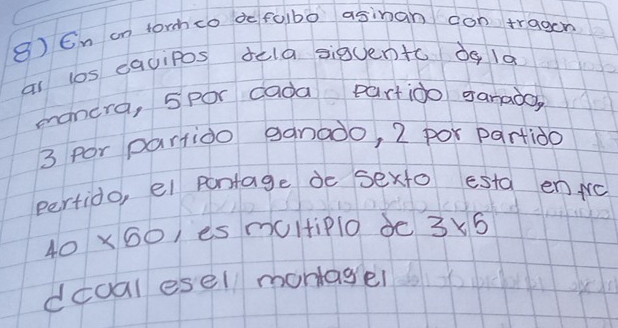 8) En un torneo de fulbo asinan don tragen
al los equipos dela siguente de la
manera, 5 por cada partido ganado,
3 por partido ganado, 2 por partido
pertido, el pontage de sexto esta entre
40 x 60, es multiplo de 3 x 5
dcual esel montagel